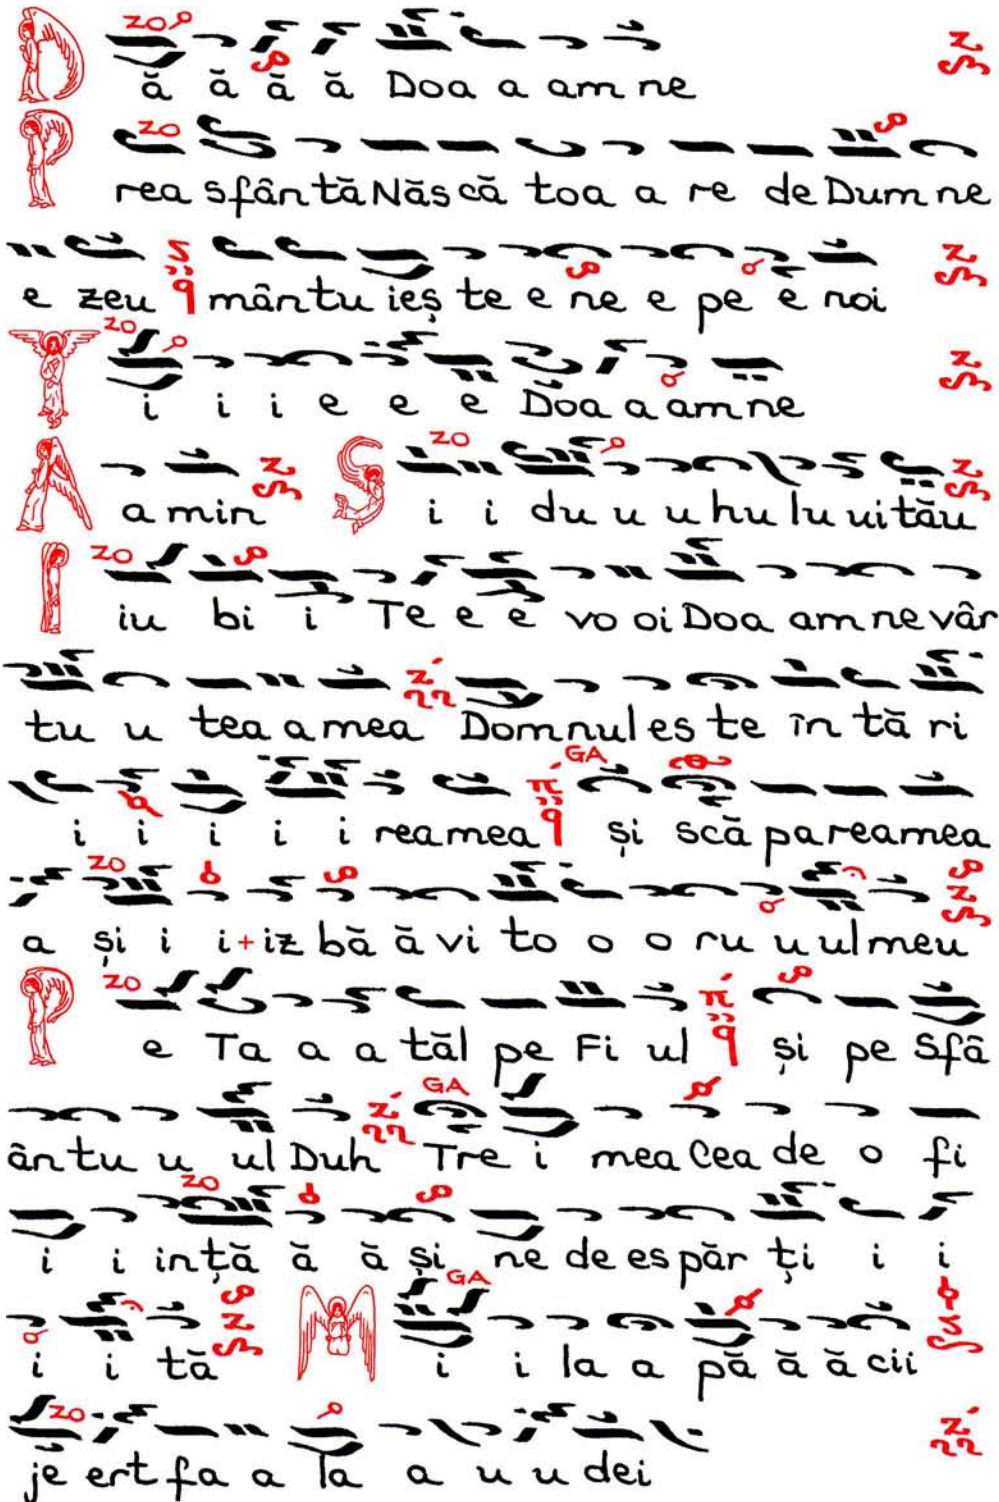 ZO
D ă ă ă ă Doa a am ne
ZO
P rea sfân tă Năs că toa a re de Dum ne
e zeu mân tu ieș te e ne e pe e noi
ZO
Ț i i i e e e Doa a am ne
ZO
A a min S i i du u u hu lu ui tău
ZO
I iu bi i Te e e vo oi Doa am ne vâr
tu u tea a mea Dom nul es te în tă ri
GA
i i i i i rea mea și scă pa rea mea
ZO
a și i i + iz bă ă vi to o o ru u ul meu
ZO
P e Ta a a tăl pe Fi ul și pe Sfâ
GA
ân tu u ul Duh Tre i mea Cea de o fi
ZO
i i in ță ă ă și ne de es păr ți i i
GA
i i tă M i i la a pă ă ă cii
ZO
je ert fa a la a u u dei